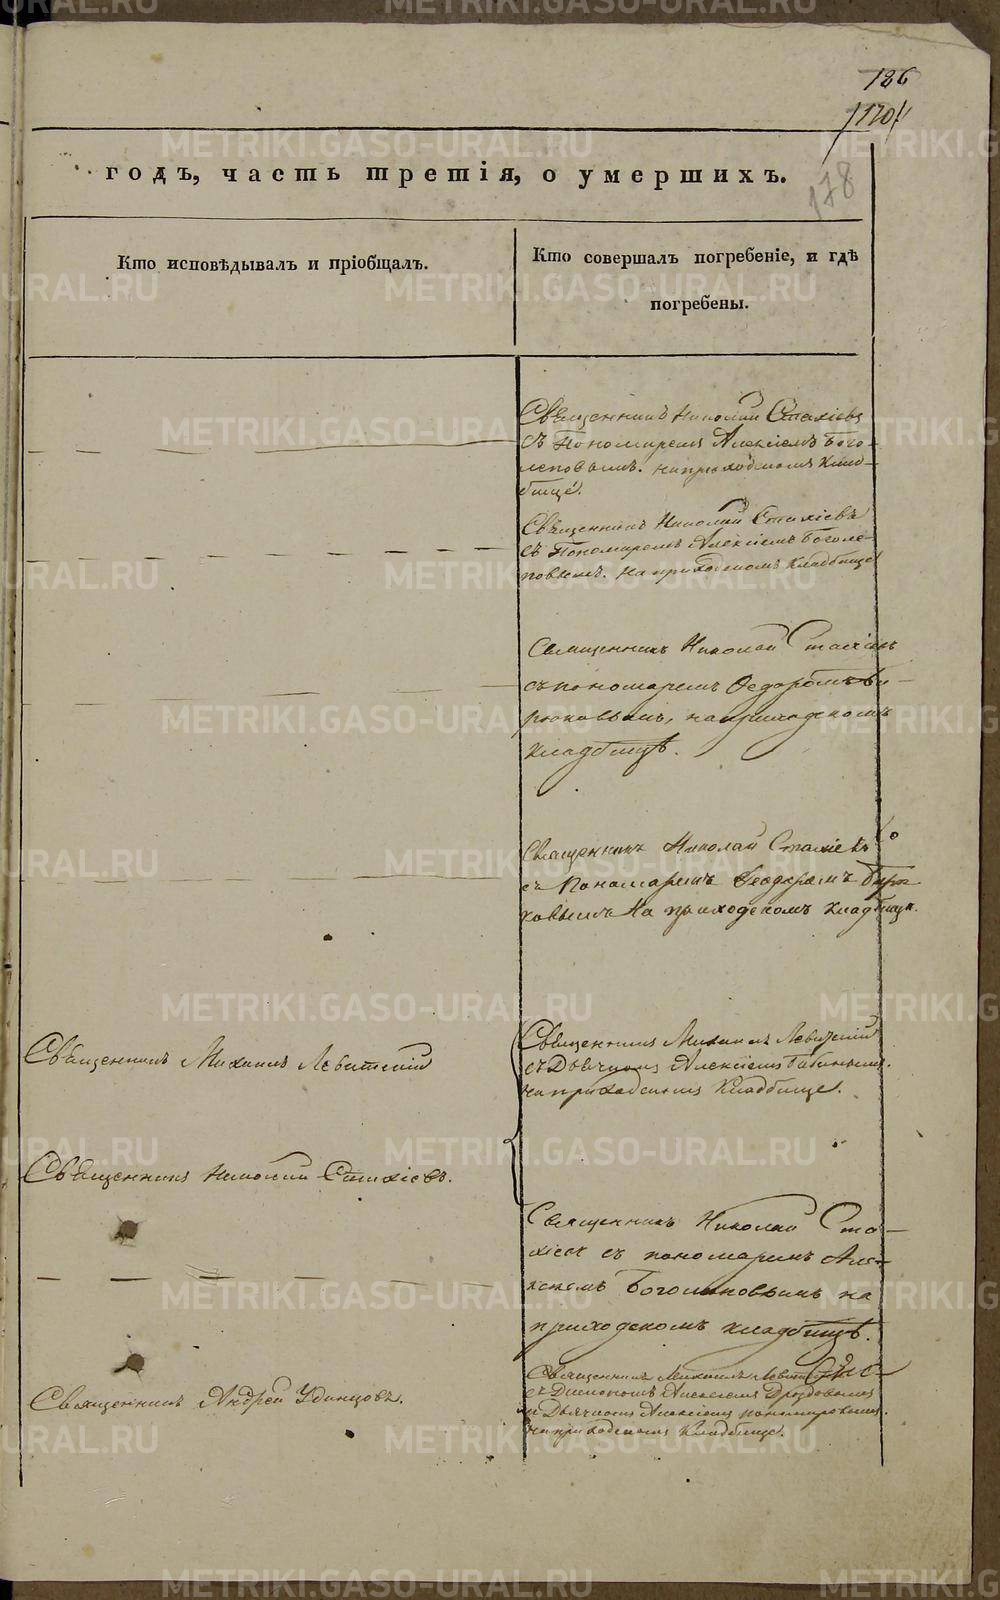 186
/120/
178
годъ, часть третія, о умершихъ.
Кто исповѣдывалъ и пріобщалъ.
Кто совершалъ погребеніе, и гдѣ
погребены.
Священникъ Николай Стахіевъ
съ Пономаремъ Алексіемъ Бого-
леповымъ. на приходскомъ клад-
бище.
Священникъ Николай Стахіевъ
съ Пономаремъ Алексіемъ Боголе-
повымъ. На приходскомъ Кладбище
Священникъ Николай Стахіевъ
съ пономаремъ Федоромъ Би-
рюковымъ, на приходскомъ
кладбищѣ.
Священникъ Николай Стахіевъ
съ Пономаремъ Феодоромъ Бирю
ковымъ На приходскомъ кладбищи.
Священникъ Михаилъ Левитскій
Священникъ Михаилъ Левитскій
съ Дьячкомъ Алексіемъ Бабинымъ.
на приходскомъ Кладбище.
Священникъ Николай Стахіевъ.
Священникъ Николай Ста-
хіевъ съ пономаремъ Але-
ксѣемъ Боголеповымъ на
приходскомъ кладбищѣ.
Священникъ Андрей Удинцовъ.
Священникъ Михаилъ Левитскій
съ Діакономъ Алексіемъ Дроздовымъ
и Дьячкомъ Алексіемъ
на приходскомъ Кладбище.
METRIKI.GASO-URAL.RU